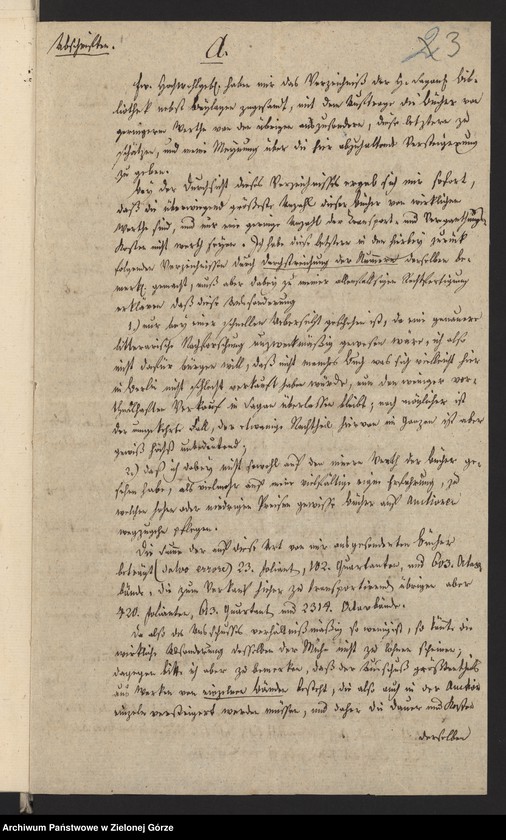 Abschriften.
A.
23
Ew. Hochwohlgeb. haben mir das Verzeichniß der H. Sagansch. Bib-
liothek nebst Beylagen zugesandt, mit dem Auftrage die Bücher von
geringerem Werthe von den übrigen auszusondern, diese letztern zu
schätzen, und meine Meynung über die hier abzuhaltende Versteigerung
zu geben.
Bey der Durchsicht dieses Verzeichnisses ergab sich mir sofort,
daß die überwiegend größeste Anzahl dieser Bücher von wirklichem
Werthe sind, und nur eine geringe Anzahl der Transport- und
Kosten nicht werth seyen. Ich habe diese letztern in den hierbey zurück
folgenden Verzeichnissen durch Durchstreichung der Numern derselben be-
merkt gemacht, muß aber dabey zu meiner allenfalsigen Rechtfertigung
erklären daß diese Aussonderung
1.) nur bey einer schnellen Uebersicht geschehen ist, da eine genauere
litterarische Nachforschung unzweckmäßig gewesen wäre, ich also
nicht dafür bürgen will, daß nicht manches Buch was sich vielleicht hier
in Berlin nicht schlecht verkauft haben würde, nun dem weniger vor-
theilhaften Verkauf in Sagan überlassen bleibt; noch möglicher ist
der umgekehrte Fall, der etwanige Nachtheil hievon im Ganzen ist aber
gewiß höchst unbedeutend;
2.) daß ich dabey nicht sowohl auf den innern Werth der Bücher ge-
sehen habe, als vielmehr auf meine vielfältige eigne Erfahrung, zu
welchen hohen oder niedrigen Preisen gewisse Bücher auf Auctionen
wegzugehn pflegen.
Die Summe der auf diese Art von mir ausgesonderten Bücher
beträgt (salvo errore) 23. Folianten, 102. Quartanten, und 603. Octav
bände, die zum Verkauf hieher zu transportirenden übrigen aber
420. Folianten, 613. Quartant. und 2314. Octavbände.
Da also der Ausschuß verhältnißmäßig so wenig ist, so könnte die
wirkliche Absonderung desselben der Mühe nicht zu lohnen scheinen;
dagegen bitte ich aber zu bemerken, daß der Ausschuß größtentheils
aus Werken von einzelnen Bänden besteht, die also auch in der Auction
einzeln versteigert werden müssen, und daher die Dauer und Kosten
derselben
Archiwum Państwowe w Zielonej Górze